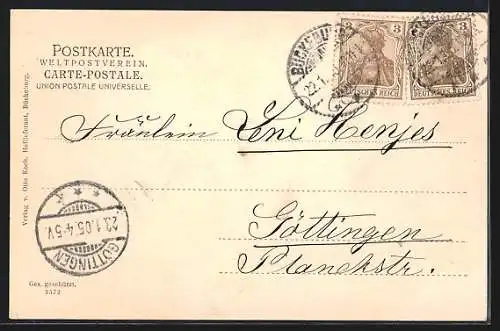 POSTKARTE.
WELTPOSTVEREIN.
CARTE-POSTALE.
UNION POSTALE UNIVERSELLE.
BÜCKEBURG
22.1.
3 3
DEUTSCHES REICH
3 3
DEUTSCHES REICH
Fräulein Leni Henjes
Göttingen
Planckstr.
GÖTTINGEN
23.1.05.4-5V.
Verlag v. Otto Koch, Hoflieferant, Bückeburg.
Ges. geschützt.
3572